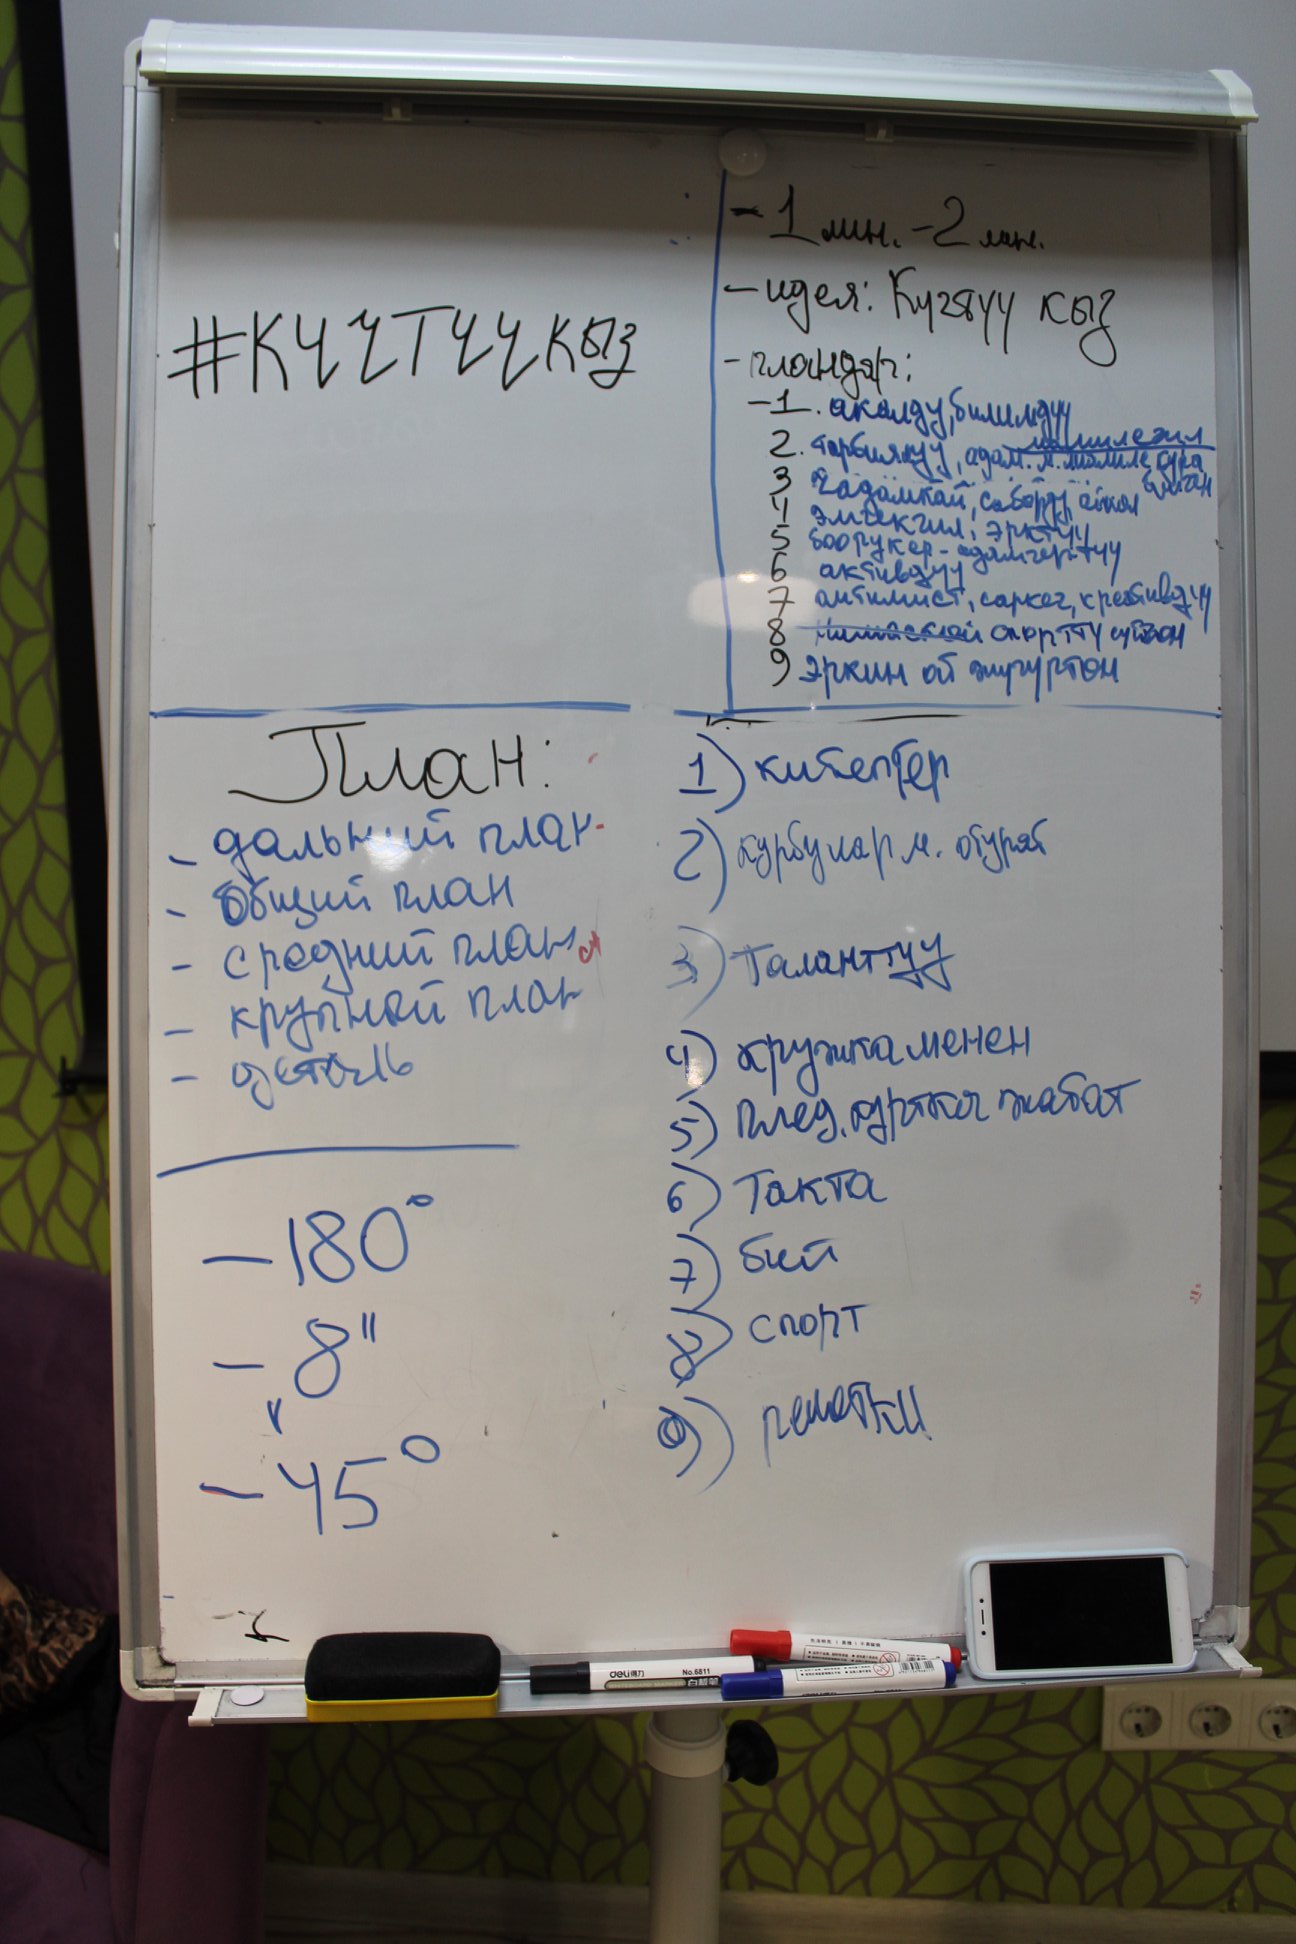 #КҮҮТҮҮ КЫЗ
- 1 мин. - 2 мин.
- идея: Күчтүү кыз
- пландар:
- 1. акылдуу, билимдүү
2. тарбиялуу, адам. м. мамиле кура
билген
3 чыдамкай, сабырдуу,
4 эмгекчил, эрктүү
5 боорукер - адамгерчтүү
6 активдүү
7 оптимист, саркеч, креативдүү
8 спортту сүйгөн
9 эркин ой жүгүрткөн
План:
- дальний план
- общий план
- средний план
- крупный план
- деталь
- 180°
- 8"
- 45°
1) китептер
2) курбулар м. отурат
3) Таланттуу
4) кружка менен
5) плед, куртка жабат
6) Такта
7) бий
8) спорт
9) решетки
deli得力 No.6811